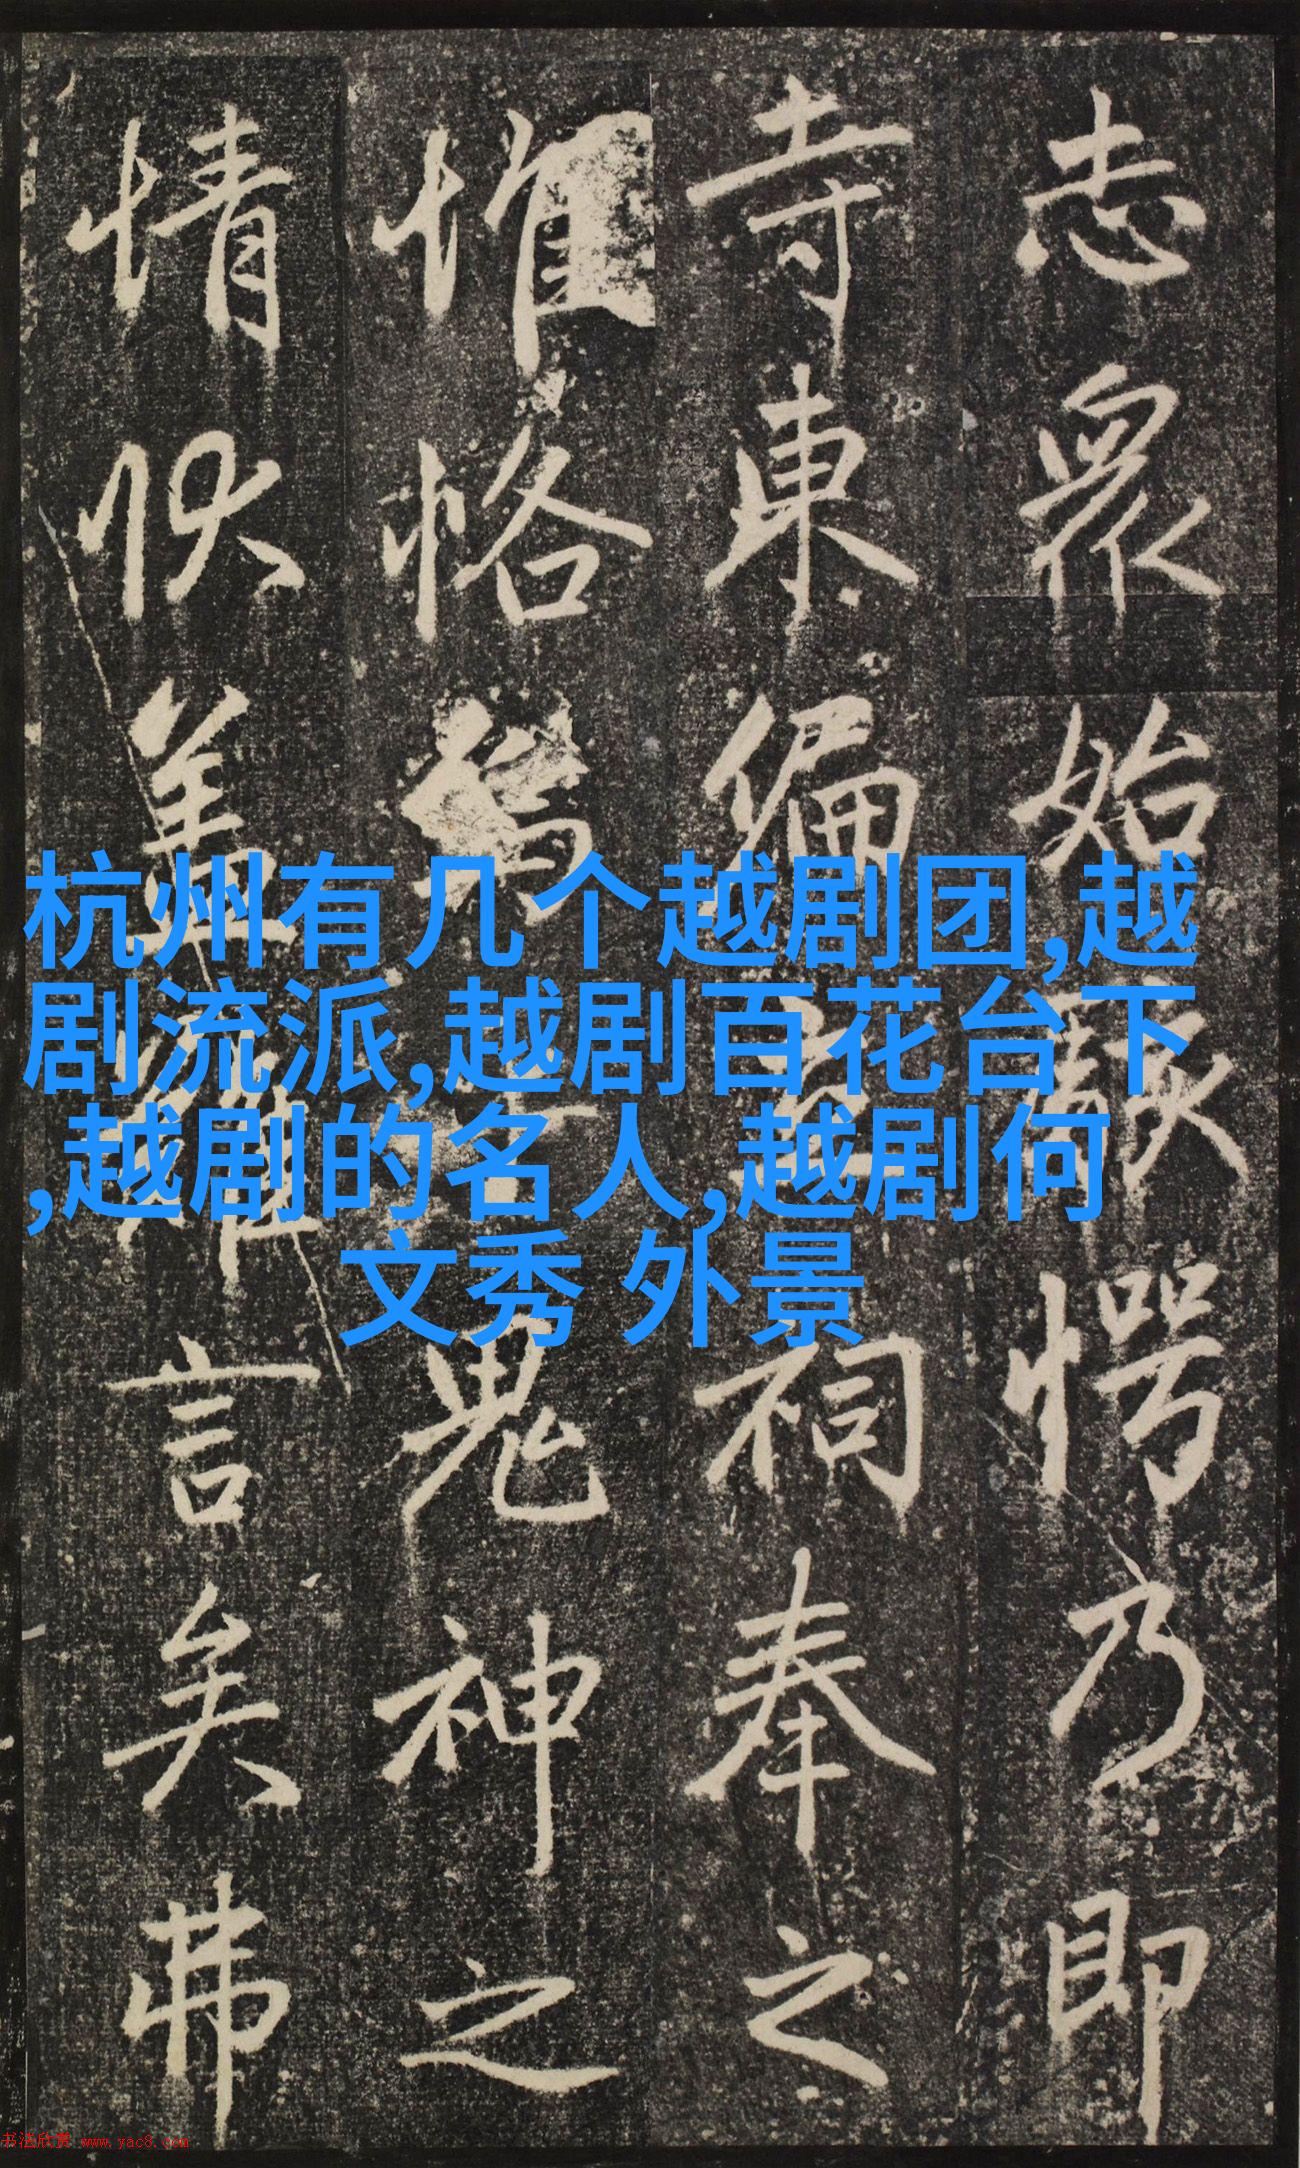 志眾始駭愕乃即
寺東偏祠奉之
惟恪為鬼神之
情狀蓋難言矣弗
杭州有几个越剧团,越
剧流派,越剧百花台下
,越剧的名人,越剧何
文秀 外景
书法欣赏 www.yac8.com